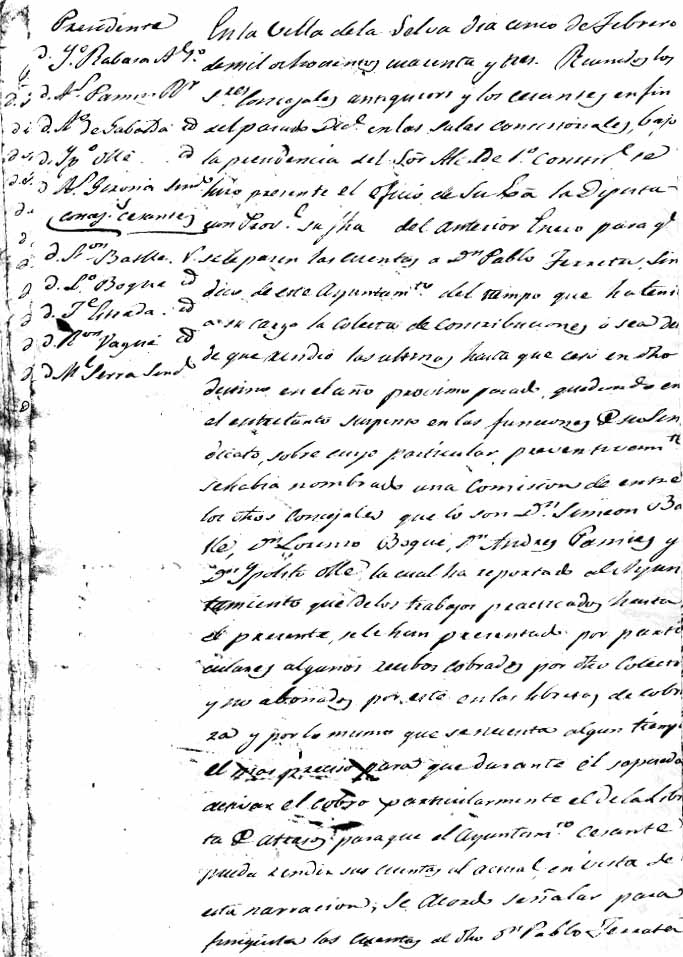 Presidente
d. Jº Rabasa A. 1º
d. Aº Pamies Rr
d. Aº de Gabada id
d. Ipº Ollé id
d. Aº Gironia Sind
Concejs cesantes
d. Son Batlle
d. Lº Bogue id
d. Jº id
d. Ron Vagué id
d. Ml Serra Sind
En la Villa de la Selva dia cinco de Febrero
de mil ochocientos cuarenta y tres. Reunidos los
Sres Concejales antiguos y los cesantes en fin
del pasado Dice en las salas consistoriales, bajo
la presidencia del Sor Alcalde 1º Constl se
hizo presente el oficio de Su Exa la Diputa-
cion Provl su fha del anterior Enero para q
se le pasen las cuentas a Dn Pablo Ferrater Sin
dico de este Ayuntamto del tiempo que ha teni
a su cargo la colecta de contribuciones ó sea des
de que rindió las ultimas hasta que cesó en dho
destino en el año proximo pasado, quedando en
el entretanto suspenso en las funciones de su Sin
dicato, sobre cuyo particular preventivamte
se habia nombrado una Comision de entre
los dhos Concejales que lo son Dn Simeon Ba
tllé, Dn Lorenzo Bogué, Dn Andres Pamies y
Dn Ipolito Ollé, la cual ha reportado al Ayun
tamiento que de los trabajos practicados hasta
el presente, se le han presentado por parti
culares algunos recibos cobrados por dho Colect
y no abonados por este en las libretas de cobr
za y por lo mismo que se necesita algun tiemp
el mas preciso para que durante él se pueda
activar el cobro particularmente el de la Libr
ta de atrasos para que el Ayuntamto cesante
pueda rendir sus cuentas al actual, en vista de
esta narracion, Se Acordó señalar para
las cuentas al dho Dn Pablo Ferrater